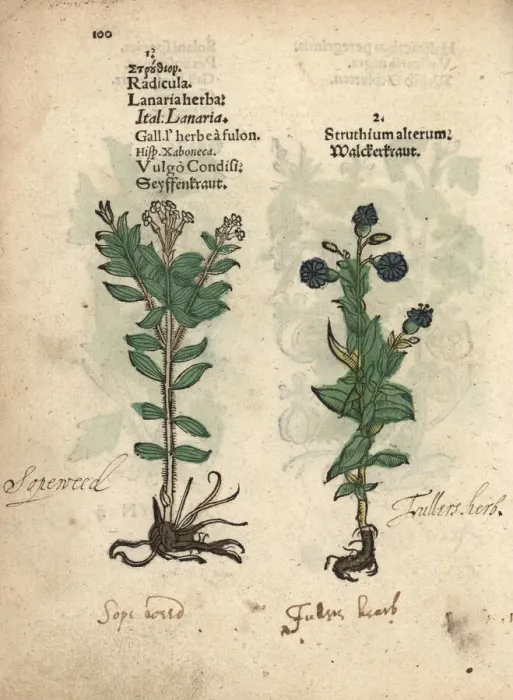 100
1.
Στρȣ́θιον.
Radicula.
Lanaria herba:
Ital: Lanaria.
Gall. l' herbe à fulon.
Hisp. Xaboneca.
Vulgò Condisi:
Seyffenkraut.
2.
Struthium alterum:
Walckerkraut.
Sopeweed
Fullers herb.
Sope weed
Fullers hearb